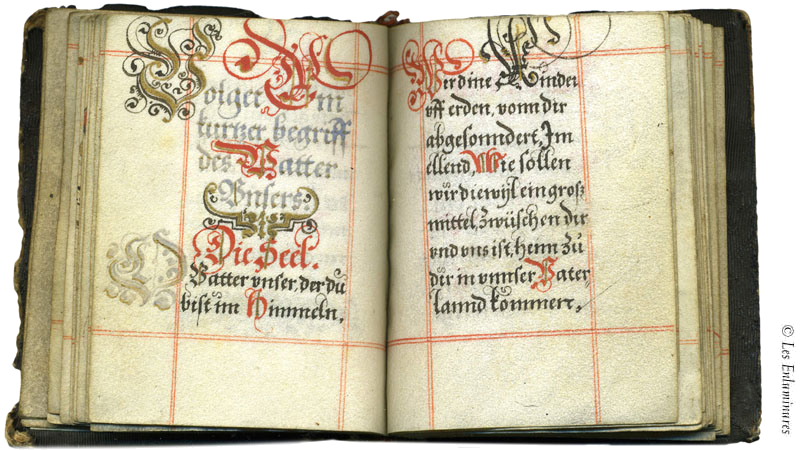 Volget Ein
kurtzer begriff
des Vatter
Vnsers.
Die Seel.
O Vatter vnser, der du
bist im Himmeln,
Wir dine Kinder
vff erden, vonn dir
abgesonndert, Im
ellend, Wie söllen
wir diewyl ein groß
mittel, Zwüschen dir
vnd vns ist, henn Zů
dir in vnnser Vater
lannd kommen,
© Les Enluminures